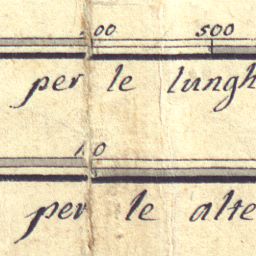 500
per le lungh
per le alte